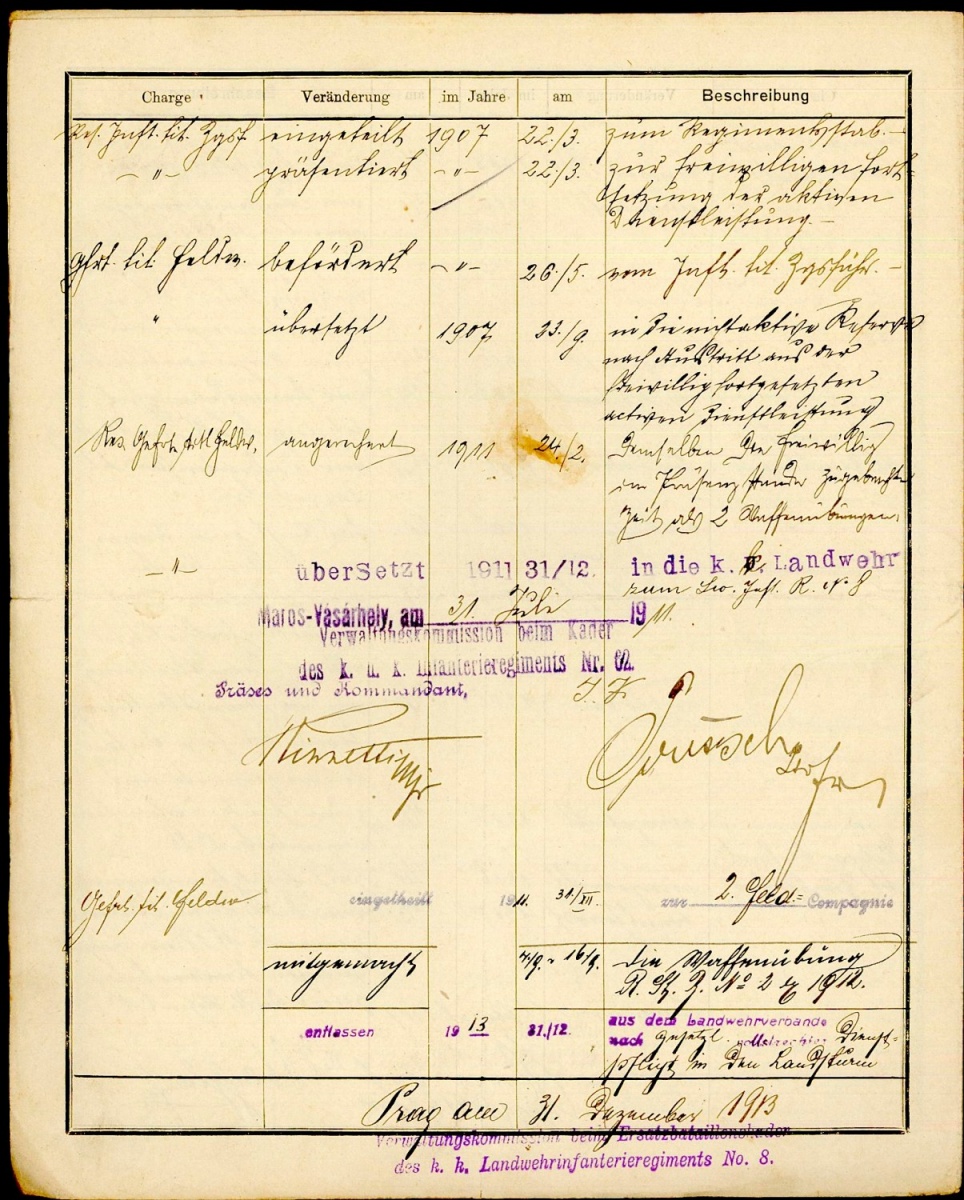 Charge Veränderung im Jahre am Beschreibung
Res. Inft. tit. Zgsf. eingeteilt 1907 22./3. zum Regimentsstab. –
–"– präsentiert –"– 22./3. zur freiwilligen Fort-
setzung der aktiven
Dienstleistung. –
Gfrt. tit. Feldw. befördert –"– 26./5. vom Inft. tit. Zgsführ. –
" übersetzt 1907 23./9. in die nichtaktive Reserve
nach Austritt aus der
freiwillig fortgesetzten
activen Dienstleistung
Res. Gefrt. titl Feldw. angerechnet 1911 24./2. demselben die freiwillig
im Präsenzstande zugebrachte
Zeit als 2 Waffenübungen.
–"– überSetzt 1911 31/12. in die k. k. Landwehr
zum Lw. Inft. R. No 8
Maros-Vásárhely, am 31. Juli 1911.
Verwaltungskommission beim Kader
des k. u. k. Infanterieregiments Nr. 62.
Präses und Kommandant,
Gefrt. tit. Feldw. eingetheilt 1911. 31./XII. zur 2. Feld= Compagnie
mitgemacht 16/9. die Waffenübung
No 2 1912.
entlassen 1913 31./12. aus dem Landwehrverbande
nach gesetzl. Dienst-
pflicht in den Landsturm
Prag am 31. Dezember 1913
Verwaltungskommission beim Ersatzbataillonskader
des k. k. Landwehrinfanterieregiments No. 8.